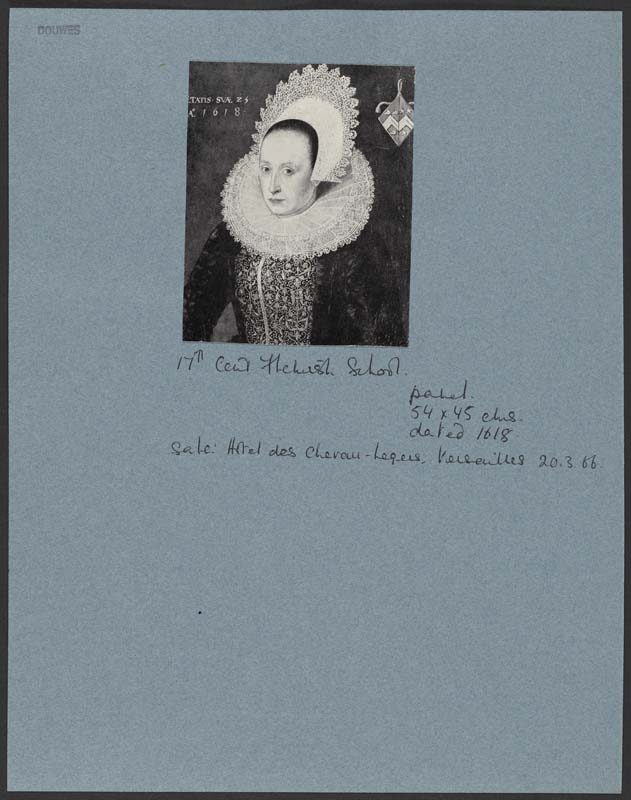 DOUWES
ÆTATIS · SVÆ 23
Aº 1618
17th Cent Flemish School.
panel.
54 x 45 cms.
dated 1618
Sale: Hôtel des Chevau-Legers, Versailles 20.3.66.